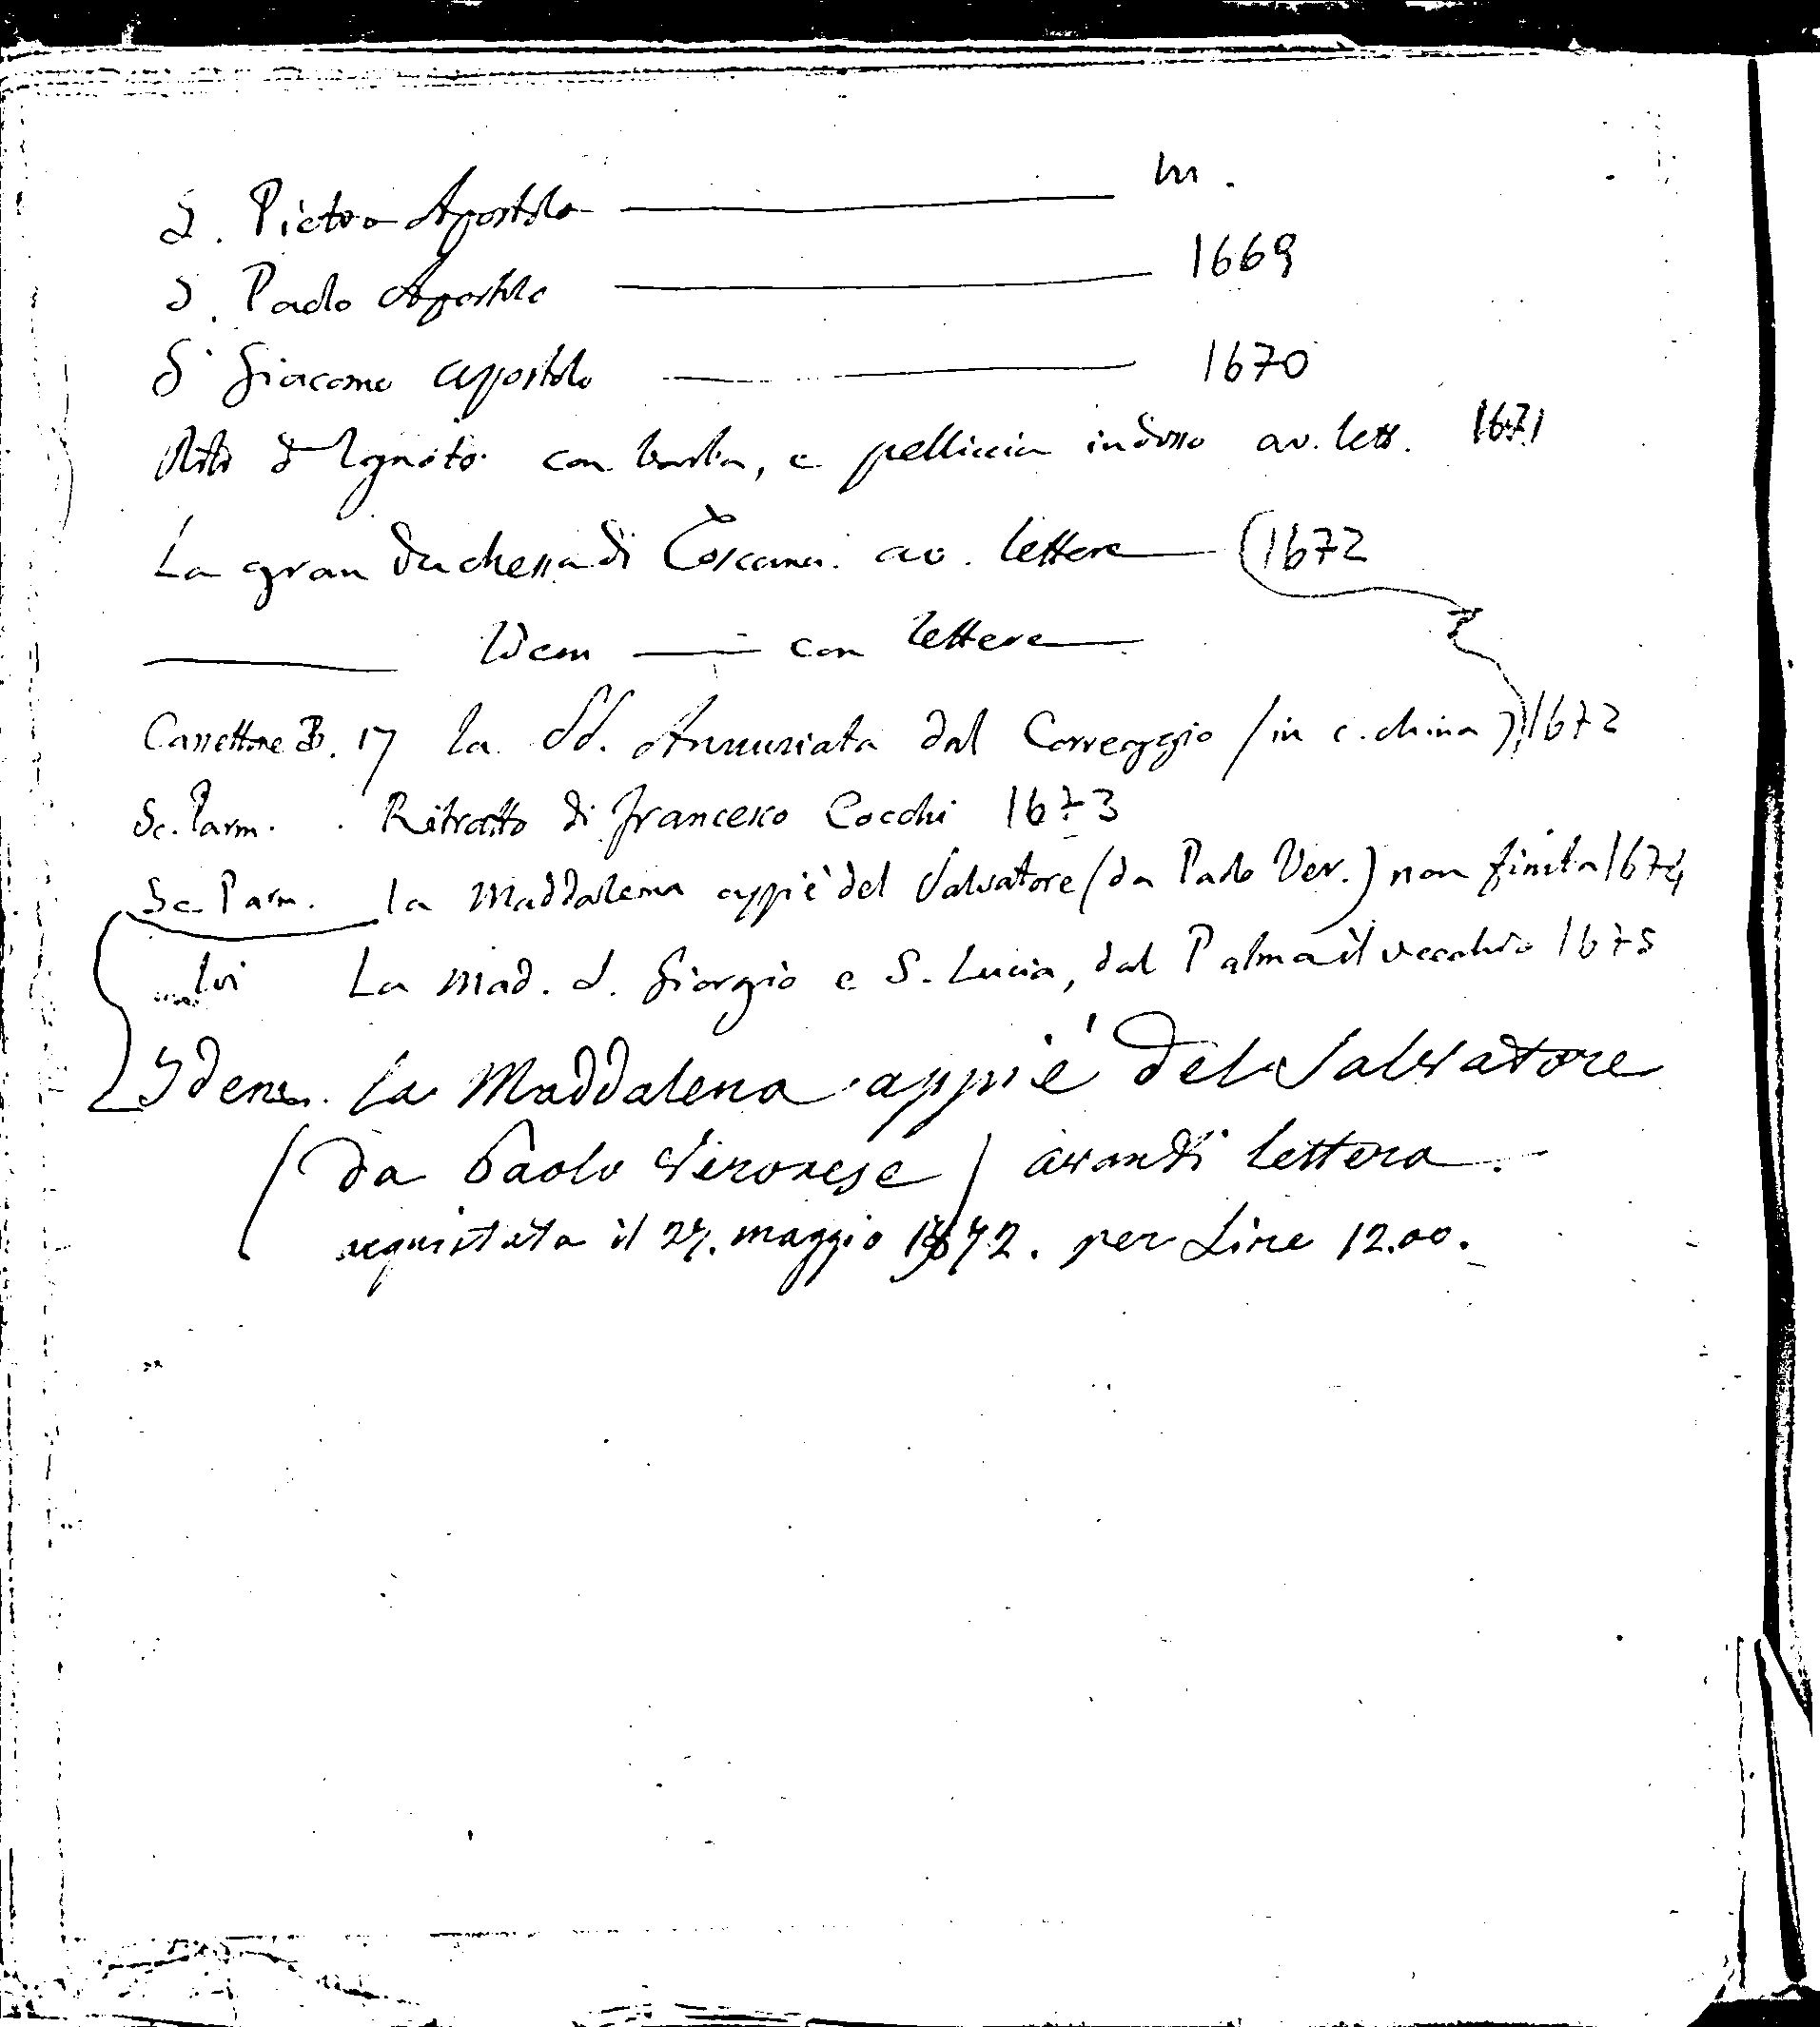 S. Pietro Apostolo — m.
S. Paolo Apostolo — 1669
S. Giacomo Appostolo — 1670
Ritto d'Ignoto con barba, e pelliccia indosso av. lett. 1671
La gran duchessa di Toscana. av. lettere — (1672
— Idem — con lettere —
Cassettone B. 17 la SS. Annunziata dal Correggio (in c. china) 1672
Sc. Parm. . Ritratto di Francesco Cocchi 1673
Sc. Parm. la Maddalena appiè del Salvatore (da Paolo Ver.) non finita 1674
Ivi La Mad. S. Giorgio e S. Lucia, dal Palma il vecchio 1675
Idem. La Maddalena appiè del Salvatore
(da Paolo Veronese) avanti lettera.
acquistata il 27. maggio 1872. per Lire 12.00.